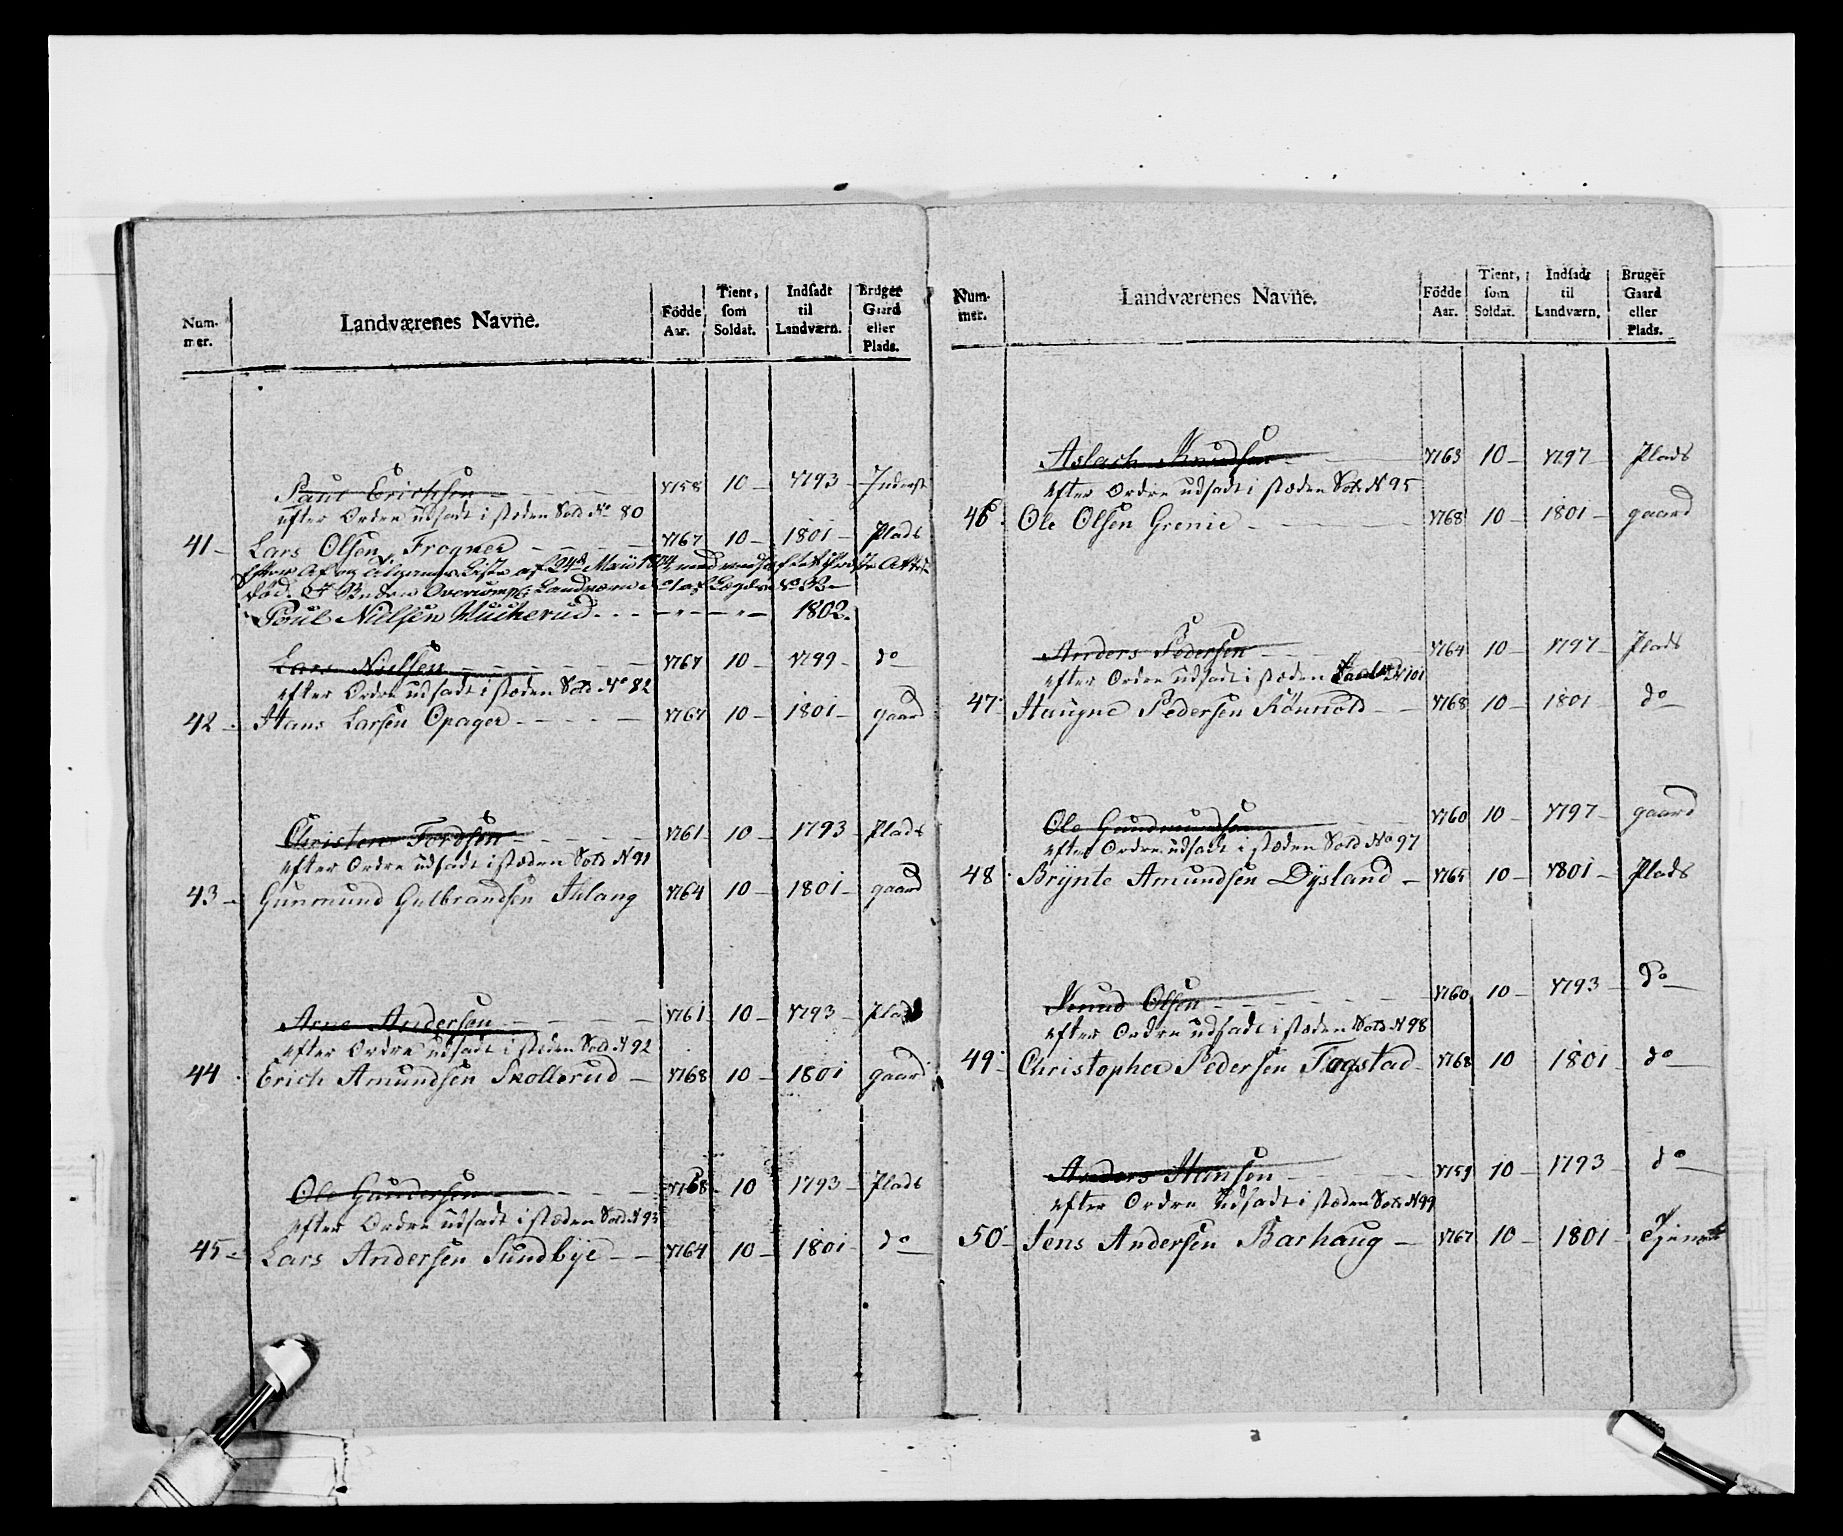 Num-
mer.
Landværenes Navne.
Födde
Aar.
Tient,
som
Soldat.
Indsadt
til
Landværn.
Bruger
Gaard
eller
Plads.
Paul Erichsen - - - - 1758 10 - 1793 - Inderst
efter Ordre udsadt i stæden Sold No 80
41 - Lars Olsen Frogner - - - 1767 10 - 1801 - Plads
død.
Poul Nielsen - - - 1802.
Lars Nielsen - - - - - 1767 10 - 1799 - do
efter Ordre udsadt i stæden Sold No 82
42 - Hans Larsen Opager - - - - 1767 10 - 1801 - gaard
Christen Tordsen - - - - 1761 10 - 1793 - Plads
efter Ordre udsadt i stæden Sold N 91
43 - Gunmund Gulbrandsen Ihlang 1764 10 - 1801 - gaard
Arne Andersen - - - - 1761 10 - 1793 - Plads
efter Ordre udsadt i stæden Sold N 92
44 Erich Amundsen Skollerud - 1768 10 - 1801 gaard
Ole Gundersen - - - - 1768 10 1793 - Plads
efter Ordre udsadt i stæden Sold N 93
45 - Lars Andersen Sundbÿe - - 1764 10 - 1801 - do
Num-
mer.
Landværenes Navne.
Födde
Aar.
Tient,
som
Soldat.
Indsadt
til
Landværn.
Bruger
Gaard
eller
Plads.
Aslach Knudsen - - 1763 10 - 1797 - Plads
efter Ordre udsadt i stæden Sold N 95
46. Ole Olsen Grenie - - - - 1768 10 - 1801 - gaard
Anders Pedersen - - - 1764 10 - 1797 - Plads
efter Ordre udsadt i stæden N 101
47. Haagne Pedersen Rönnold - - 1768 10 - 1801 - do
Ole Gundmundsen - - - 1760 10 - 1797 - gaard
efter Ordre udsadt i stæden Sold No 97
48. Brÿnte Amundsen Dÿsland - 1765 10 - 1801 - Plads
Knud Olsen - - - - - 1760 10 - 1793 - do
efter Ordre udsadt i stæden Sold N 98
49. Christopher Pedersen Fagstad - 1768 10 1801 - do
Anders Hansen - - - 1759 10 - 1793 - do
efter Ordre udsadt i stæden Sold N 99
50 - Jens Andersen Barhaug - 1767 10 - 1801 -